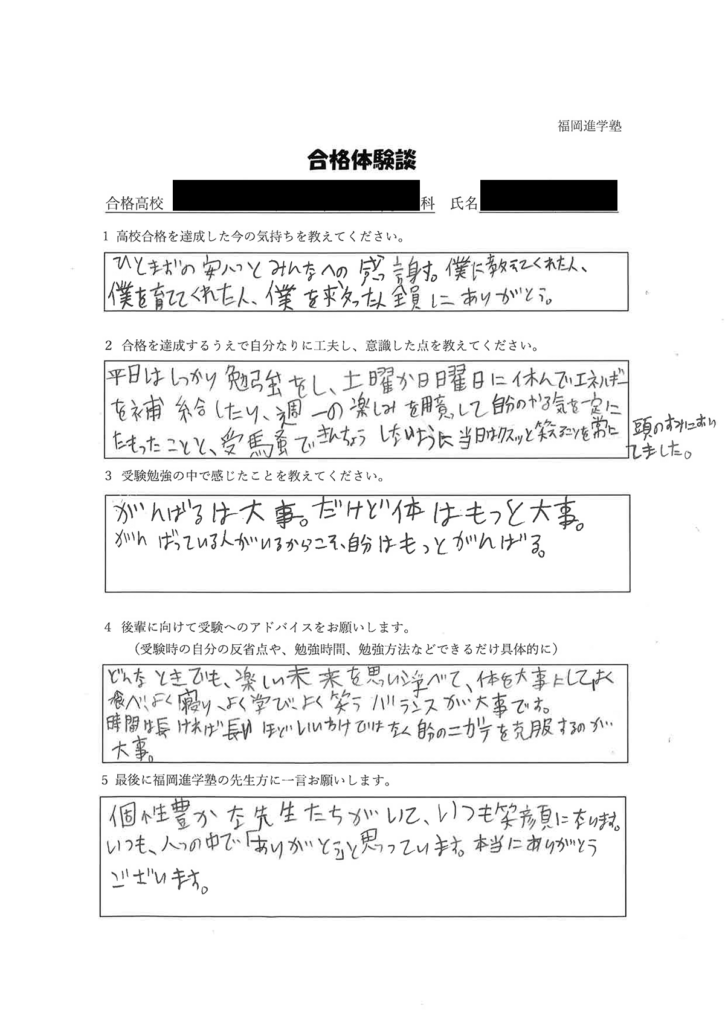 福岡進学塾
合格体験談
合格高校 科 氏名
1 高校合格を達成した今の気持ちを教えてください。
ひとまずの安心とみんなへの感謝。僕に教えてくれた人、
僕を育ててくれた人、僕を支えた人全員にありがとう。
2 合格を達成するうえで自分なりに工夫し、意識した点を教えてください。
平日はしっかり勉強をし、土曜か日曜日に休んでエネルギー
を補給したり、週一の楽しみを用意して自分のやる気を一定に
たもったことと、受験できんちょうしないように当日はクスッと笑えることを常に
頭のすみにおい
てました。
3 受験勉強の中で感じたことを教えてください。
がんばるは大事。だけど体はもっと大事。
がんばっている人がいるからこそ、自分はもっとがんばる。
4 後輩に向けて受験へのアドバイスをお願いします。
（受験時の自分の反省点や、勉強時間、勉強方法などできるだけ具体的に）
どんなときでも、楽しい未来を思い浮べて、体を大事にしてよく
食べ、よく寝り、よく学び、よく笑うバランスが大事です。
時間は長ければ長いほどいいわけではなく自分のニガテを克服するのが
大事。
5 最後に福岡進学塾の先生方に一言お願いします。
個性豊かな先生たちがいて、いつも笑顔になります。
いつも、心の中で「ありがとう」と思っています。本当にありがとう
ございます。